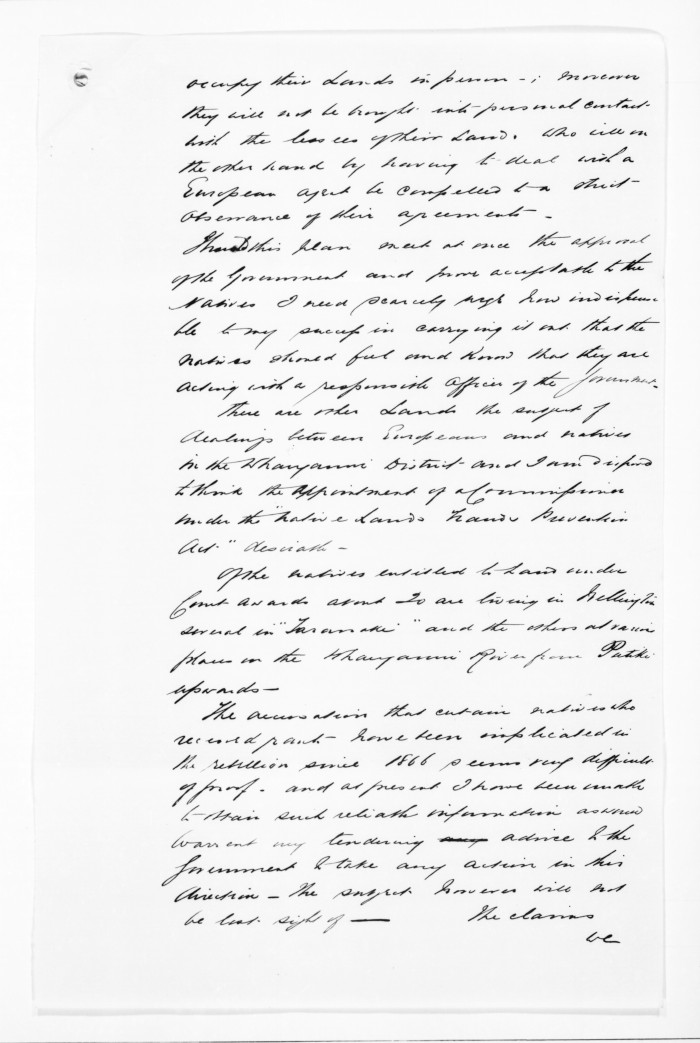 occupy their Lands in person -; moreover
they will not be brought into personal contact
with the lessees of their Land. Who will on
the other hand by having to deal with a
European agent be compelled to a strict
observance of their agreements -
Should this plan meet at once the approval
of the Government and prove acceptable to the
Natives I need scarcely urge how indispensa
ble to my success in carrying it out that the
natives should feel and know that they are
acting with a responsible officer of the Government -
There are other Lands the subject of
dealings between Europeans and natives
in the Whanganui District and I am disposed
to think the appointment of a Commissioner
under the "Native Lands Frauds Prevention
Act" desirable -
Of the natives entitled to Land under
Court awards about 20 are living in Wellington
several in "Taranaki" and the others at various
places on the Whanganui River from Putiki
upwards -
The accusation that certain natives who
received grants have been implicated in
the rebellion since 1866 seems very difficult
of proof - and at present I have been unable
to obtain such reliable information as would
warrant my tendering any advice to the
Government to take any action in this
direction - The subject however will not
be lost sight of — The claims
we